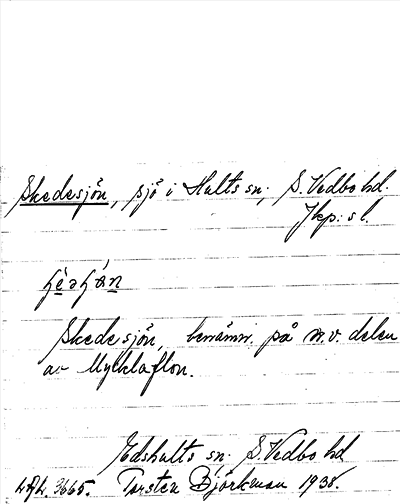 Skedesjön, sjö i Hults sn, S. Vedbo hd.
Jkp: s l.
Skedesjön, benämn. på n.v. delen
av Mycklaflon.
Edshults sn. S. Vedbo hd
Torsten Björkman 1938.